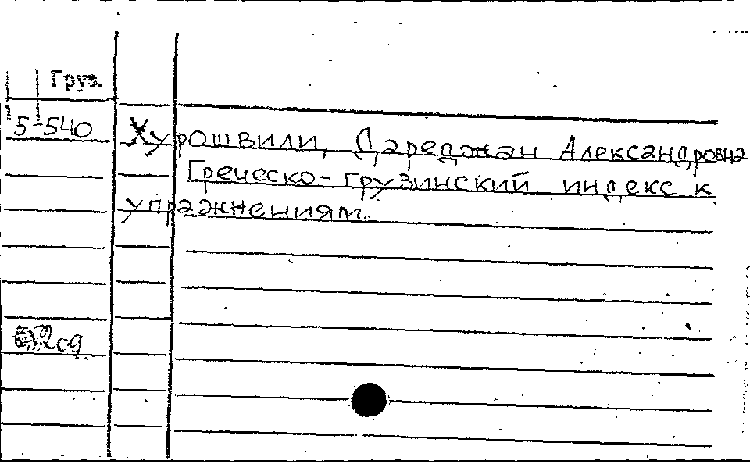 Груз.
5-540
Хурошвили, Дареджан Александровна
Греческо-грузинский индекс к
упражнениям.